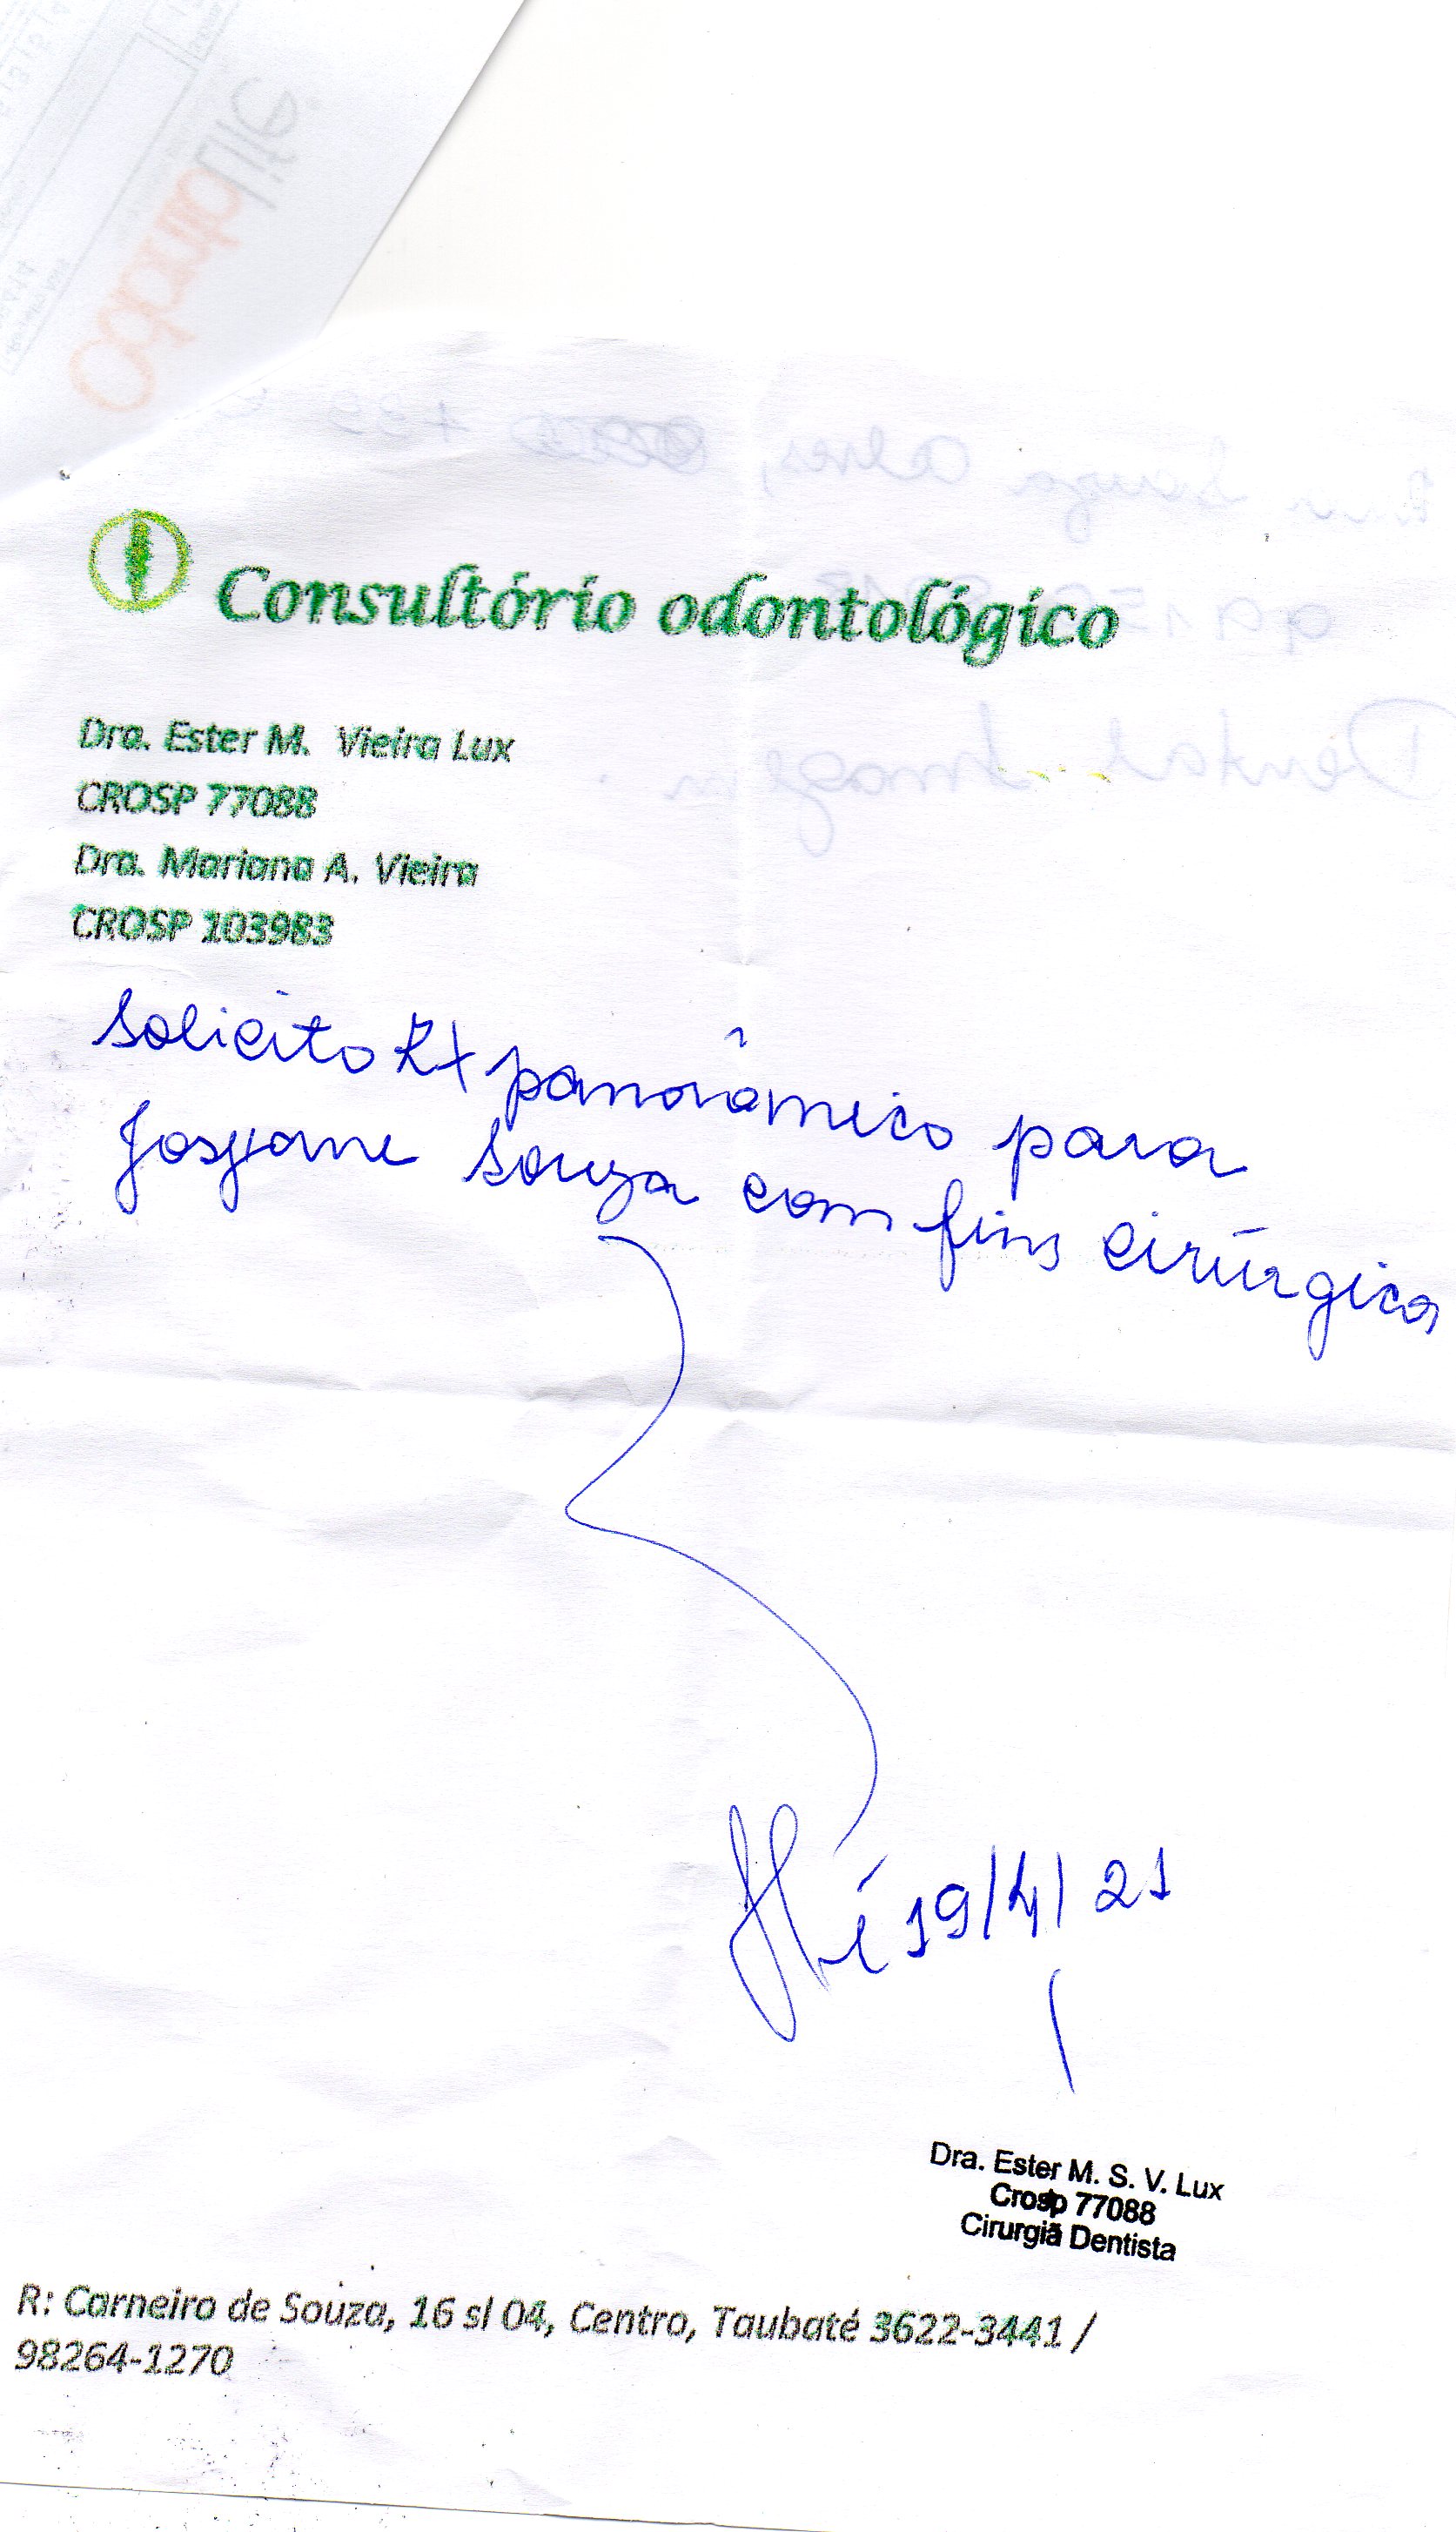 Odontolife
Consultório odontológico
Dra. Ester M. Vieira Lux
CROSP 77088
Dra. Mariana A. Vieira
CROSP 103983
Solicito RX panorâmico para
Josyane Souza com fins cirúrgicos
19/4/21
Dra. Ester M. S. V. Lux
Crosp 77088
Cirurgiã Dentista
R: Carneiro de Souza, 16 sl 04, Centro, Taubaté 3622-3441 /
98264-1270
Souza Alves,
Dental Imagem